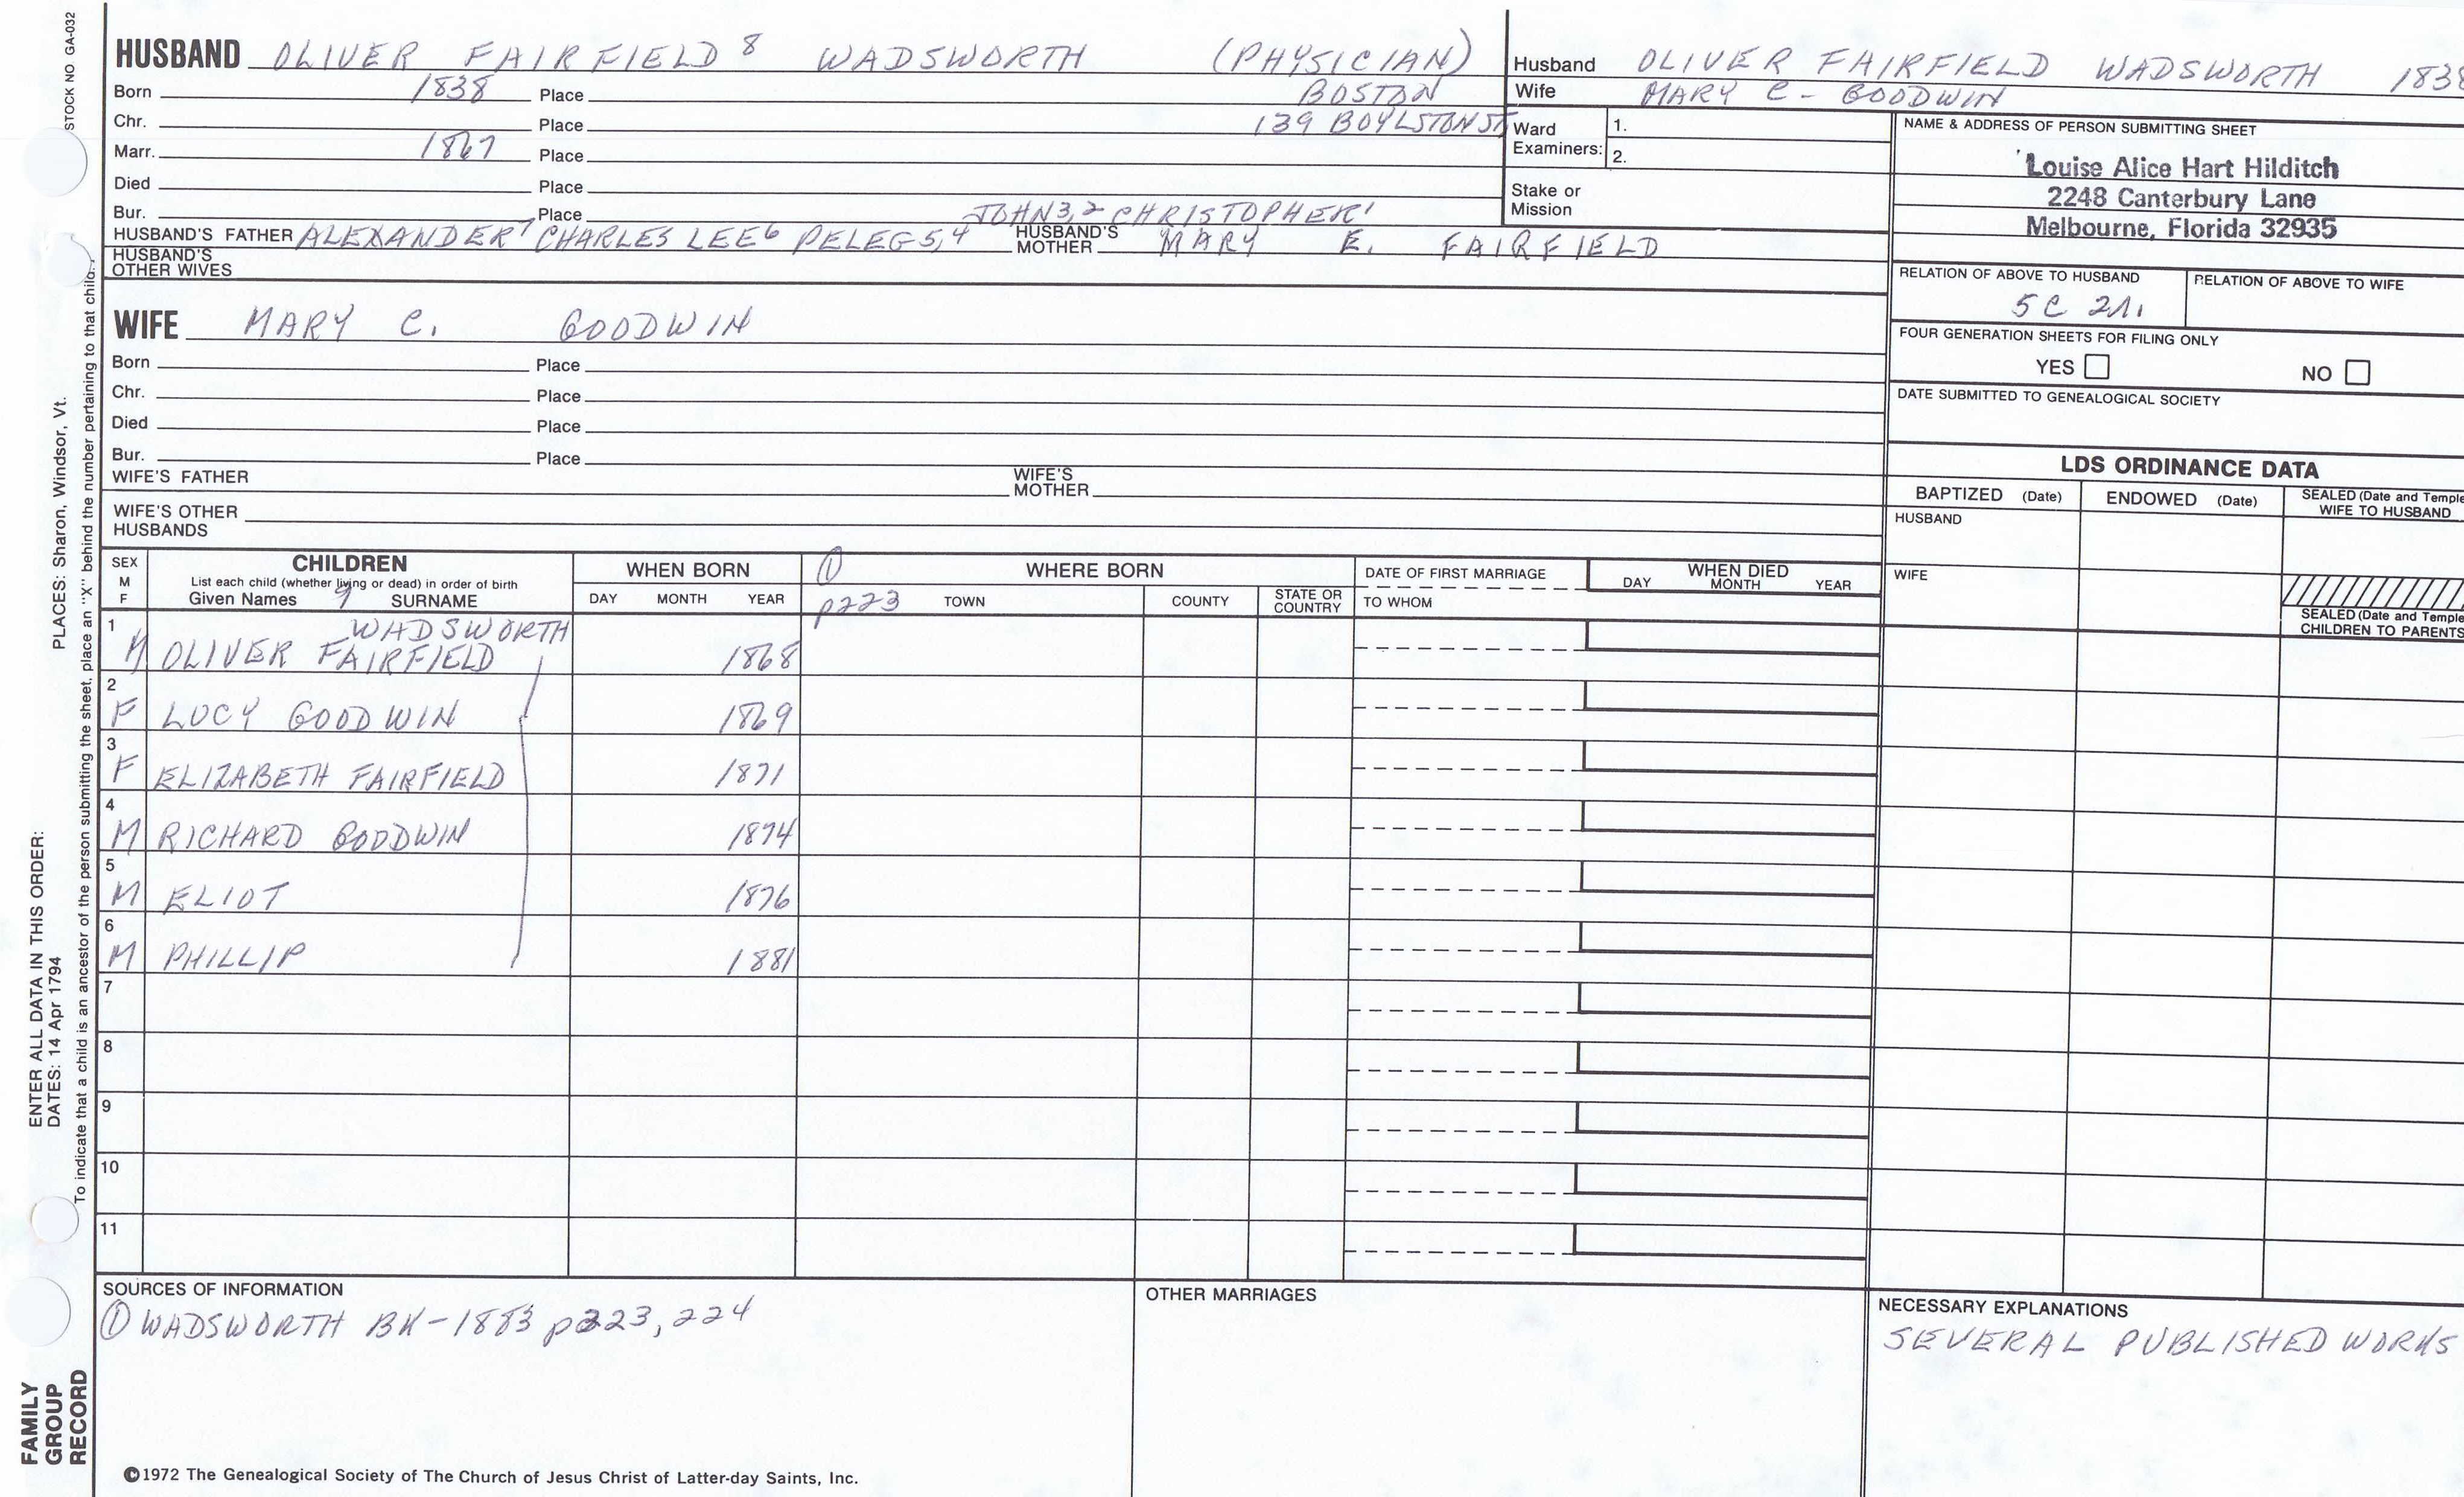 STOCK NO GA-032
HUSBAND OLIVER FAIRFIELD 8 WADSWORTH (PHYSICIAN)
Born 1838 Place BOSTON
Chr. Place 139 BOYLSTON ST
Marr. 1867 Place
Died Place
Bur. Place JOHN3,2 CHRISTOPHER1
HUSBAND'S FATHER ALEXANDER7 CHARLES LEE6 PELEG5,4 HUSBAND'S MOTHER MARY E. FAIRFIELD
HUSBAND'S OTHER WIVES
WIFE MARY C. GOODWIN
Born Place
Chr. Place
Died Place
Bur. Place
WIFE'S FATHER WIFE'S MOTHER
WIFE'S OTHER HUSBANDS
Husband OLIVER FAIRFIELD WADSWORTH 1838
Wife MARY C - GOODWIN
Ward Examiners: 1.
2.
Stake or Mission
NAME & ADDRESS OF PERSON SUBMITTING SHEET
Louise Alice Hart Hilditch
2248 Canterbury Lane
Melbourne, Florida 32935
RELATION OF ABOVE TO HUSBAND RELATION OF ABOVE TO WIFE
5C 2r.
FOUR GENERATION SHEETS FOR FILING ONLY
YES NO
DATE SUBMITTED TO GENEALOGICAL SOCIETY
LDS ORDINANCE DATA
BAPTIZED (Date) ENDOWED (Date) SEALED (Date and Temple
WIFE TO HUSBAND
HUSBAND
WIFE
SEALED (Date and Temple
CHILDREN TO PARENTS
SEX M F CHILDREN WHEN BORN ① WHERE BORN DATE OF FIRST MARRIAGE WHEN DIED
List each child (whether living or dead) in order of birth
Given Names 9 SURNAME DAY MONTH YEAR p223 TOWN COUNTY STATE OR COUNTRY TO WHOM DAY MONTH YEAR
WADSWORTH
1 M OLIVER FAIRFIELD 1868
2 F LUCY GOODWIN 1869
3 F ELIZABETH FAIRFIELD 1871
4 M RICHARD GOODWIN 1874
5 M ELIOT 1876
6 M PHILLIP 1881
7
8
9
10
11
SOURCES OF INFORMATION
① WADSWORTH BK-1883 p223, 224
OTHER MARRIAGES
NECESSARY EXPLANATIONS
SEVERAL PUBLISHED WORKS
©1972 The Genealogical Society of The Church of Jesus Christ of Latter-day Saints, Inc.
FAMILY GROUP RECORD
ENTER ALL DATA IN THIS ORDER:
DATES: 14 Apr 1794
PLACES: Sharon, Windsor, Vt.
To indicate that a child is an ancestor of the person submitting the sheet, place an "X" behind the number pertaining to that child.